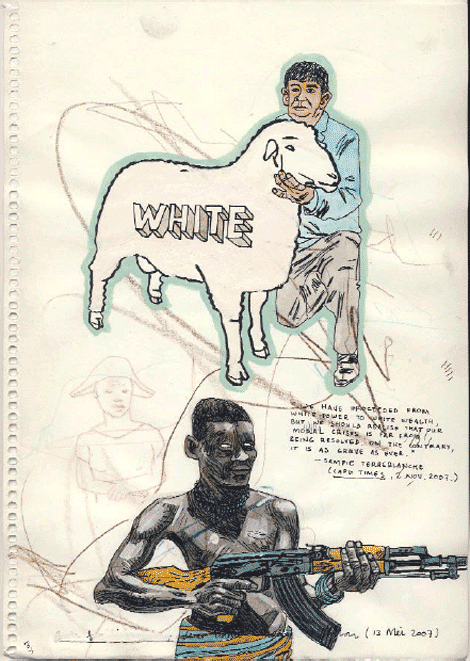 WHITE
"WE HAVE PROGRESSED FROM
WHITE POWER TO WHITE WEALTH,
BUT WE SHOULD REALISE THAT OUR
MORAL CRISIS IS FAR FROM
BEING RESOLVED. ON THE CONTRARY,
IT IS AS GRAVE AS EVER."
— SAMPIE TERREBLANCHE
(CAPE TIMES, 2 NOV. 2007.)
(13 Mei 2007)